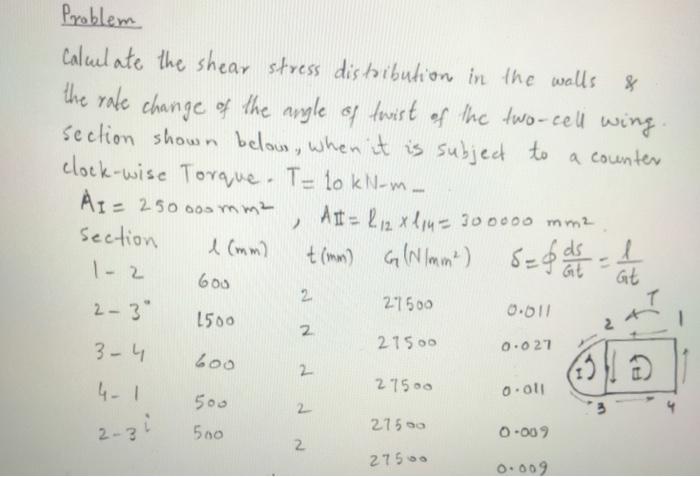 Problem
Calculate the shear stress distribution in the walls &
the rate change of the angle of twist of the two-cell wing.
section shown below, when it is subject to a counter
clock-wise Torque. T= 10 kN-m
AI = 250 000 mm², AII = l12 x l14 = 300000 mm².
section l (mm) t (mm) G (N/mm²) δ = ∮ ds/Gt = l/Gt
1-2 600 2 27500 0.011
2-3° 1500 2 27500 0.027
3-4 600 2 27500 0.011
4-1 500 2 27500 0.009
2-3i 500 2 27500 0.009
T
2 1
I II
3 4